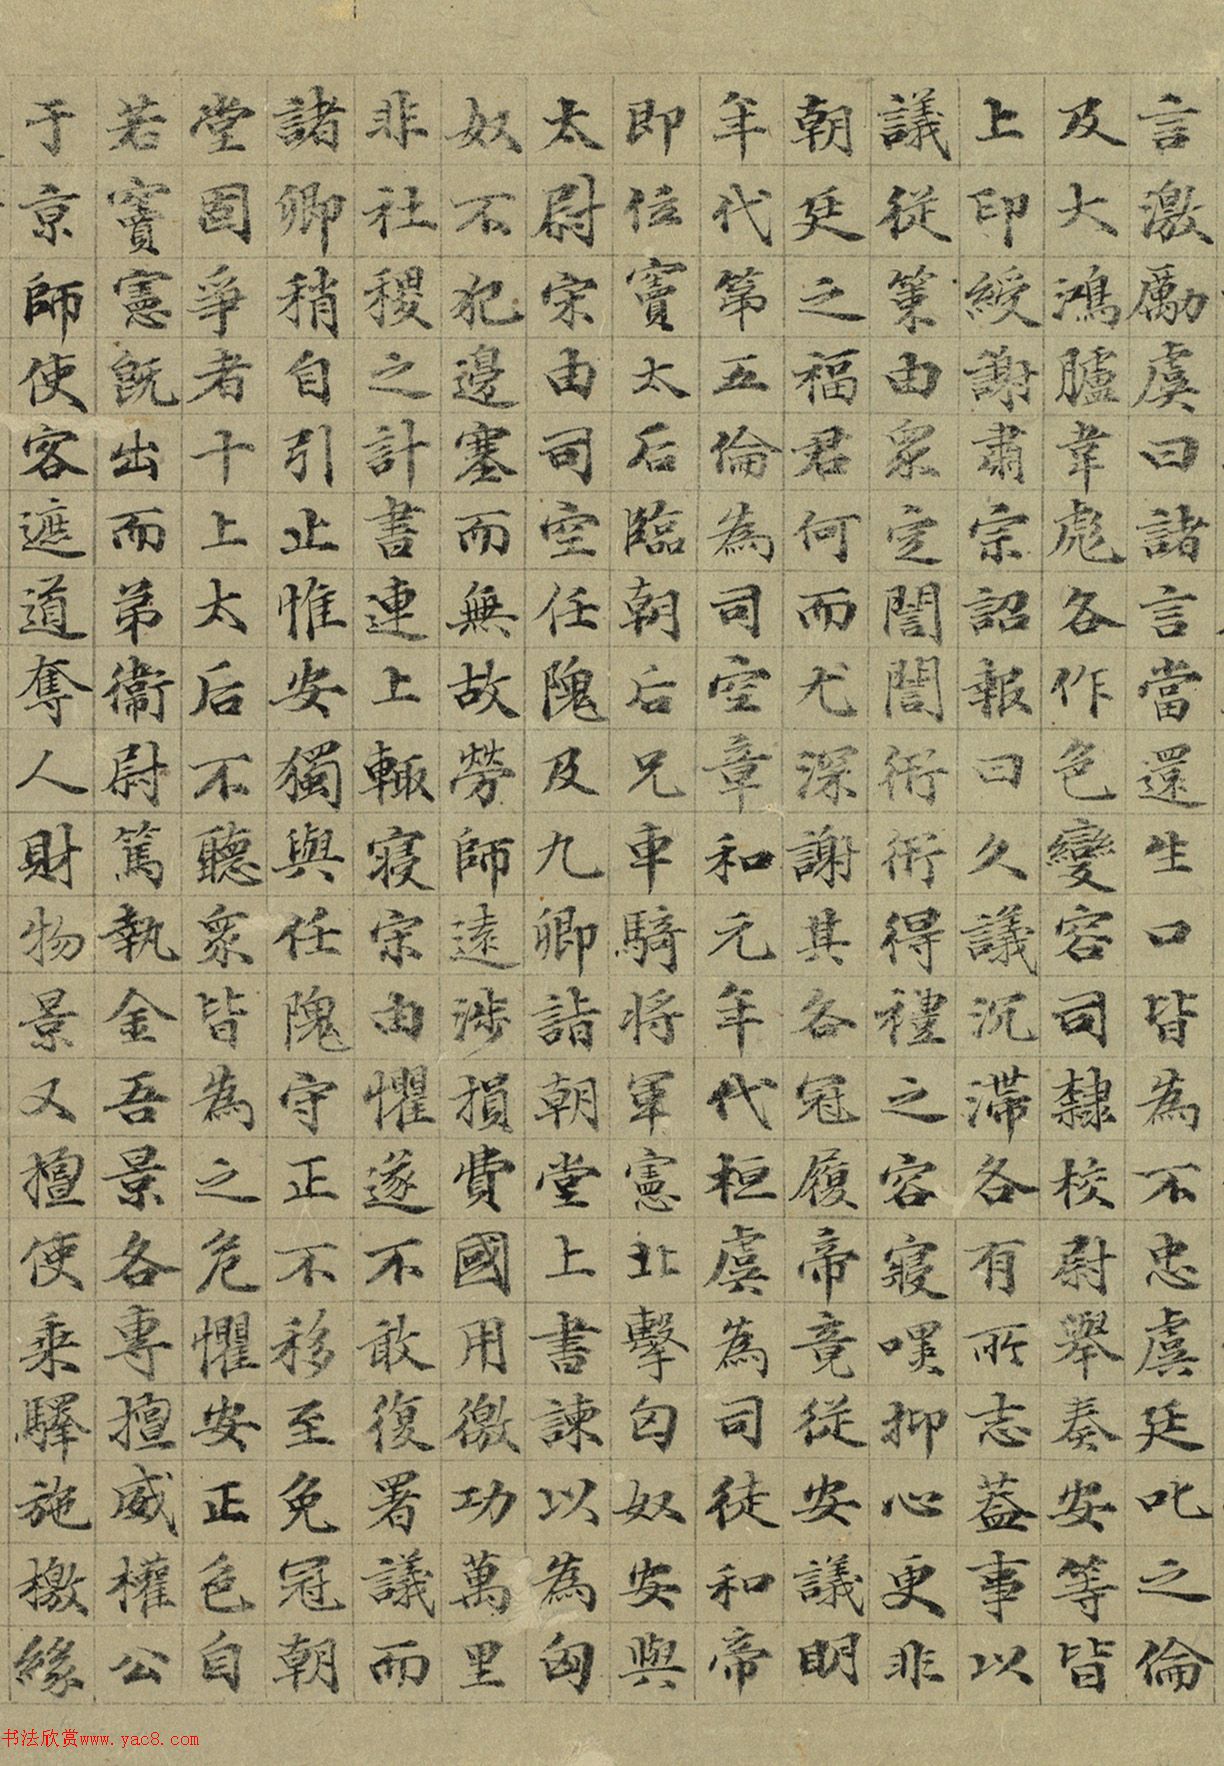 言激厲虞曰諸言當還生口皆為不忠虞廷叱之倫
及大鴻臚韋彪各作色變容司隸校尉舉奏安等皆
上印綬謝肅宗詔報曰久議沉滯各有所志蓋事以
議從策由眾定誾誾衎衎得禮之容寢嘿抑心更非
朝廷之福君何而尤深謝其各冠履帝竟從安議明
年代第五倫為司空章和元年代桓虞為司徒和帝
即位竇太后臨朝后兄車騎將軍憲北擊匈奴安與
太尉宋由司空任隗及九卿詣朝堂上書諫以為匈
奴不犯邊塞而無故勞師遠涉損費國用徼功萬里
非社稷之計書連上輒寢宋由懼遂不敢復署議而
諸卿稍自引止惟安獨與任隗守正不移至免冠朝
堂固爭者十上太后不聽眾皆為之危懼安正色自
若竇憲既出而弟衞尉篤執金吾景各專擅威權公
于京師使客遮道奪人財物景又擅使乘驛施檄緣
书法欣赏www.yac8.com